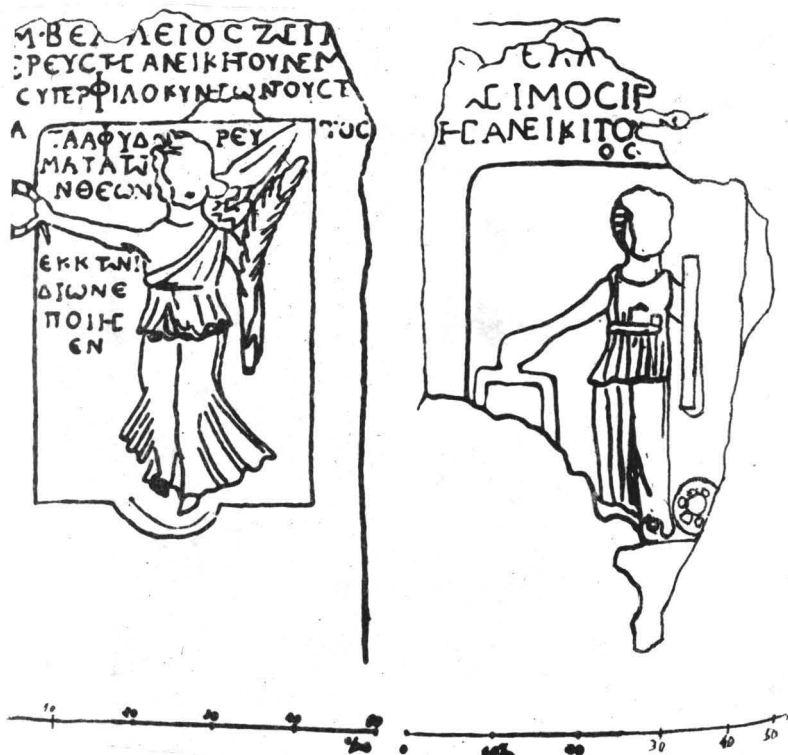 Μ·ΒΕΛΛΕΙΟϹΖΩϹΙΜ
ΕΡΕΥϹΤΗϹΑΝΕΙΚΙΤΟΥΝΕΜ
ϹΥΠΕΡΦΙΛΟΚΥΝΗΓΩΝΤΟΥϹΤ
Α ΤΟϹ
ΤΑΑΦΥΔ ΡΕΥ
ΜΑΤΑΤΩ
ΝΘΕΩΝ
ΕΚΚΤΩΝΙ
ΔΙΩΝΕ
ΠΟΙΗϹ
ΕΝ
ΕΛΛ
ΩϹΙΜΟϹΙΡ
ΗϹΑΝΕΙΚΙΤΟ
ΟϹ
10 20 30 40
0 30 40 50